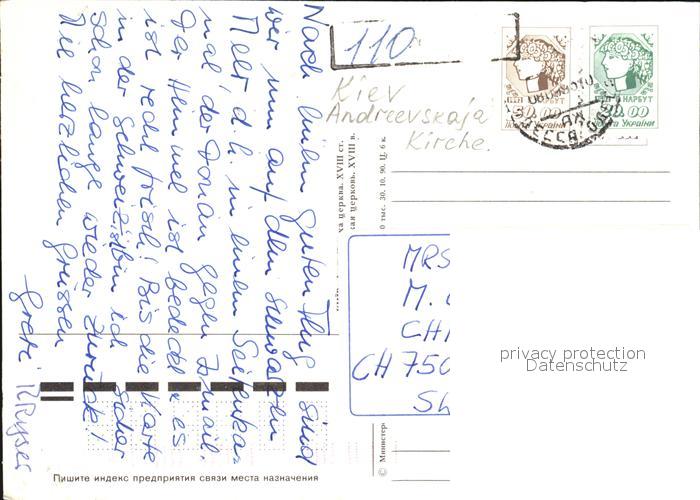 Nach einem guten Flug sind
wir nun auf dem schwarzen
Meer, d.h. in einem Seitenka-
nal der Donau gegen Ismail.
Der Himmel ist bedeckt & es
ist recht frisch! Bis die Karte
in der Schweiz ist bin ich sicher
schon lange wieder zurück!
Mit herzlichen Grüssen
Greti
110
Kiev
Andreevskaja
Kirche.
НАРБУТ
30.00
Пошта України
НАРБУТ
00.00
Пошта України
ка церква. XVIII ст.
кая церковь. XVIII в.
0 тыс. 30. 10. 90. Ц. 6 к.
© Министерс
MRS
M.
CH
CH 750
privacy protection
Datenschutz
Пишите индекс предприятия связи места назначения